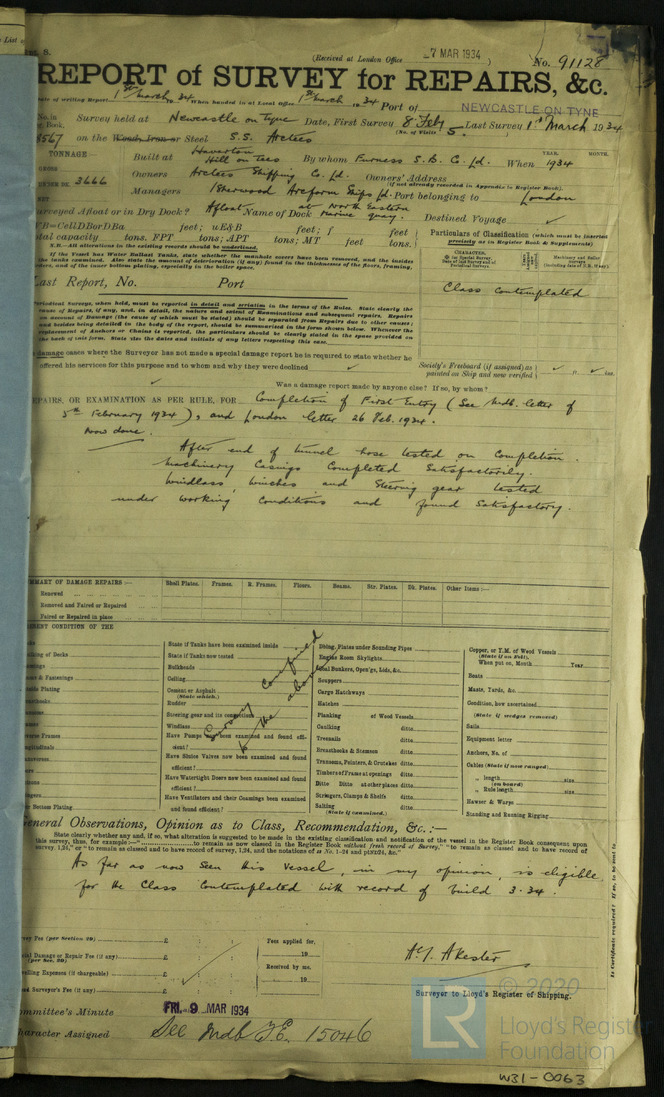 (Received at London Office 7 MAR 1934 ) No. 91128
REPORT of SURVEY for REPAIRS, &c.
Date of writing Report 1st March 1934 When handed in at Local Office 1st March 1934 Port of NEWCASTLE ON TYNE
No. in Survey held at Newcastle on Tyne Date, First Survey 8 Feby Last Survey 1st March 1934
Book. (No. of Visits 5.
8567 on the Wood, Iron or Steel S.S. Arctees
TONNAGE Built at Haverton Hill on Tees By whom Furness S.B. Co. Ld. When 1934
YEAR. MONTH.
GROSS 3666 Owners Arctees Shipping Co. Ld. Owners' Address
(if not already recorded in Appendix to Register Book).
Managers Sherwood Arcform Ships Ld. Port belonging to London
Surveyed Afloat or in Dry Dock? Afloat Name of Dock at North Eastern Marine Quay. Destined Voyage ✓
WB=CellDBorDBa feet; uE&B feet; f feet
total capacity tons. FPT tons; APT tons; MT feet tons.
N.B.—All alterations in the existing records should be underlined.
If the Vessel has Water Ballast Tanks, state whether the manhole covers were removed, and the insides
of the tanks examined. Also state the amount of deterioration (if any) found in the thicknesses of the floors, framing,
and of the inner bottom plating, especially in the boiler space.
Particulars of Classification (which must be inserted
precisely as in Register Book & Supplements)
CHARACTER.
Class contemplated
Last Report, No. Port
Periodical Surveys, when held, must be reported in detail and seriatim in the terms of the Rules. State clearly the
cause of Repairs, if any, and, in detail, the nature and extent of Examinations and subsequent repairs. Repairs
on account of Damage (the cause of which must be stated) should be separated from Repairs due to other causes;
and besides being detailed in the body of the report, should be summarized in the form shown below. Whenever the
replacement of Anchors or Chains is reported, the particulars should be clearly stated in the space provided on
the back of this form. State also the dates and initials of any letters respecting this case.
In damage cases where the Surveyor has not made a special damage report he is required to state whether he
offered his services for this purpose and to whom and why they were declined ✓
Society's Freeboard (if assigned) as
painted on Ship and now verified ✓ ft. ✓ ins.
Was a damage report made by anyone else? If so, by whom?
REPAIRS, OR EXAMINATION AS PER RULE, FOR Completion of First Entry (See Mdb. letter of
5th February 1934), and London letter 26 Feb. 1934.
Now done.
After end of tunnel hose tested on completion.
Machinery Casings Completed Satisfactorily.
Windlass, winches and Steering gear tested
under working Conditions and found Satisfactory.
SUMMARY OF DAMAGE REPAIRS :— Shell Plates. Frames. R. Frames. Floors. Beams. Str. Plates. Dk. Plates. Other Items :—
Renewed
Removed and Faired or Repaired
Faired or Repaired in place
PRESENT CONDITION OF THE
Caulking of Decks
Coamings
Beams & Fastenings
Reverse Frames
Longitudinals
Transverses
Floors
Inner Bottom Plating
State if Tanks have been examined inside
State if Tanks now tested
Bulkheads
Ceiling
Cement or Asphalt
(State which.)
Rudder
Steering gear and its connections
Windlass
Have Pumps now been examined and found effi-
cient?
Have Sluice Valves now been examined and found
efficient?
Have Watertight Doors now been examined and found
efficient?
Have Ventilators and their Coamings been examined
and found efficient?
Survey confined
to the above
Dblng. Plates under Sounding Pipes
Engine Room Skylights
Coal Bunkers, Open'gs, Lids, &c.
Scuppers
Cargo Hatchways
Hatches
Planking of Wood Vessels
Caulking ditto
Treenails ditto
Breasthooks & Stemson ditto
Transoms, Pointers, & Crutches ditto
Timbers of Frame at openings ditto
Ditto Ditto at other places ditto
Stringers, Clamps & Shelfs ditto
Salting ditto
(State if examined.)
Copper, or Y.M. of Wood Vessels
(State if on Felt).
When put on, Month Year
Boats
Masts, Yards, &c.
Condition, how ascertained
(State if wedges removed)
Sails
Equipment letter
Anchors, No. of
Cables (State if now ranged)
" length size
(on board)
" Rule length size
Hawser & Warps
Standing and Running Rigging
General Observations, Opinion as to Class, Recommendation, &c. :—
State clearly whether any, and if so, what alteration is suggested to be made in the existing classification and notification of the vessel in the Register Book consequent upon
this survey, thus, for example:—" to remain as now classed in the Register Book without fresh record of Survey," "to remain as classed and to have record of
survey, 1,24," or "to remain as classed and to have record of survey, 1,24, and the notations of ss No. 1-24 and ptND24, &c."
As far as now seen this vessel, in my opinion, is eligible
for the Class Contemplated with record of build 3.34.
Survey Fee (per Section 29) £ : :
Special Damage or Repair Fee (if any) £ : :
(per Sec. 29)
Travelling Expenses (if chargeable) £ : :
Second Surveyor's Fee (if any) £ : :
Fees applied for,
19
Received by me,
19
A.J. Akester
Surveyor to Lloyd's Register of Shipping.
Committee's Minute FRI. 9 MAR 1934
Character Assigned See Mdb F.E. 15046
Is Certificate required? If so, to be sent to
© 2020
LR
Lloyd's Register
Foundation
W31-0063